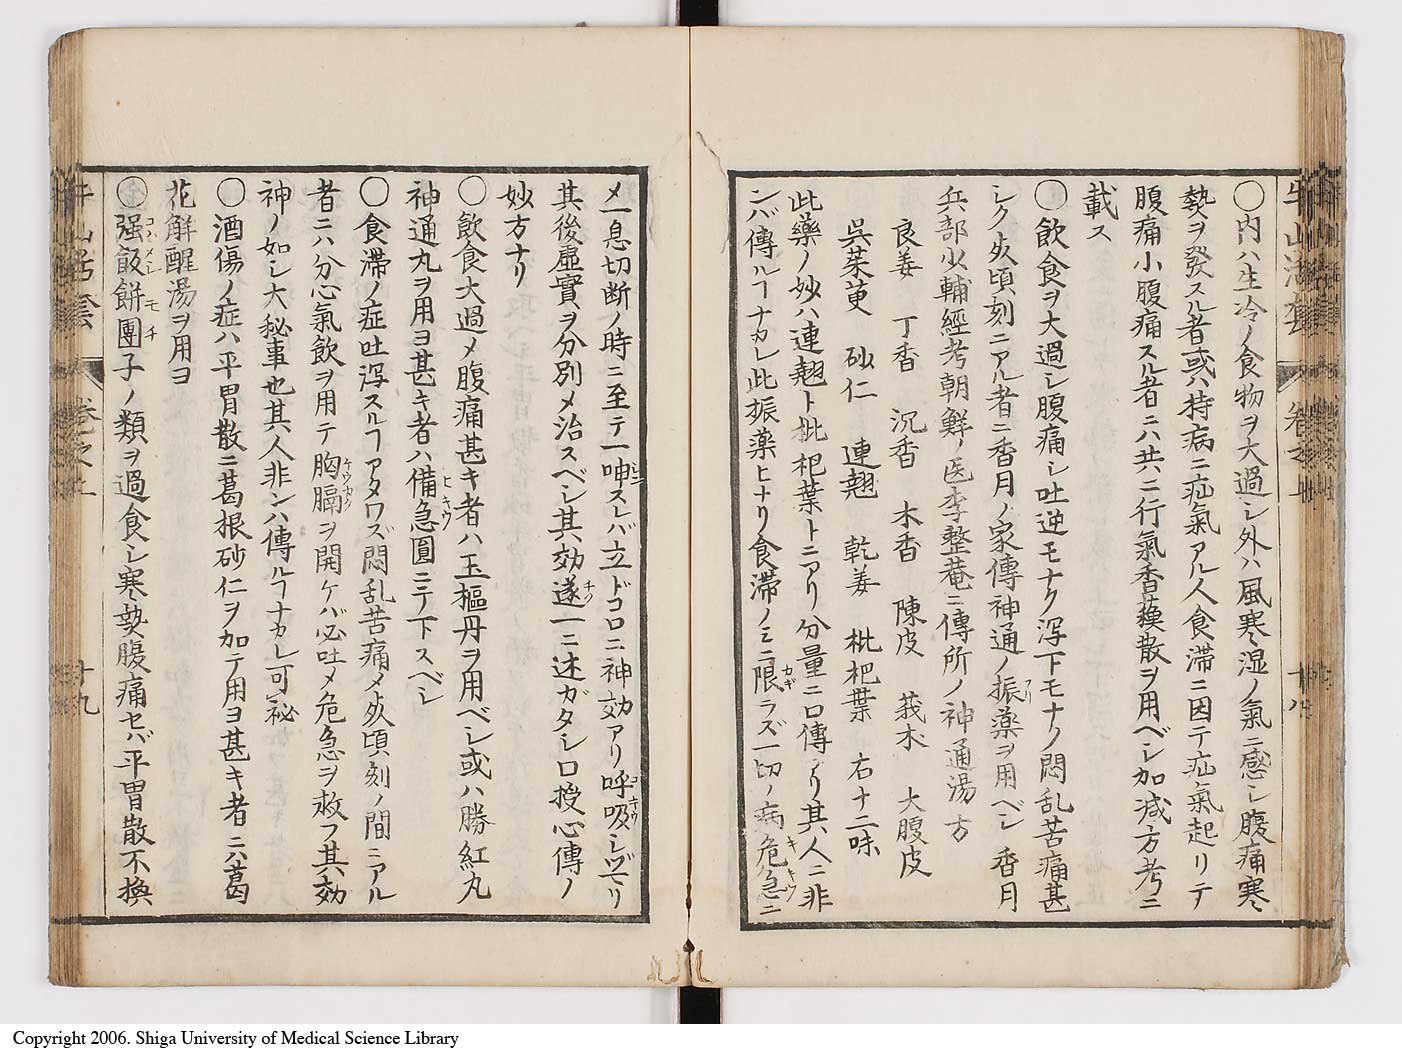 〇内ハ生冷ノ食物ヲ大過シ外ハ風寒湿ノ氣ニ感シ腹痛寒
熱ヲ發スル者或ハ持病ニ疝氣アル人食滞ニ因テ疝氣起リテ
腹痛小腹痛スル者ニハ共ニ行氣香蘓散ヲ用ベシ加減方考ニ
載ス
〇飲食ヲ大過シ腹痛シ吐逆モナク瀉下モナク悶乱苦痛甚
シク炗頃刻ニアル者ニ香月ノ家傳神通ノ振薬ヲ用ベシ香月
兵部少輔經考朝鮮ノ医李整菴ニ傳所ノ神通湯方
良姜 丁香 沉香 木香 陳皮 莪朮 大腹皮
呉茱萸 砂仁 連翹 乾姜 枇杷葉 右十二味
此藥ノ妙ハ連翹ト枇杷葉トニアリ分量ニ口傳アリ其人ニ非
ンバ傳ルヿナカレ此振薬ヒナリ食滞ノミニ限ラズ一切ノ病危急ニ
メ一息切断ノ時ニ至テ一呻スレバ立ドコロニ神効アリ呼吸シヅマリ
其後虚實ヲ分別メ治スベシ其効遂一ニ述ガタシ口授心傳ノ
妙方ナリ
〇飲食大過メ腹痛甚キ者ハ玉樞丹ヲ用ベシ或ハ勝紅丸
神通丸ヲ用ヨ甚キ者ハ備急圓ニテ下スベシ
〇食滞ノ症吐瀉スルヿアタワズ悶乱苦痛メ炗頃刻ノ間ニアル
者ニハ分心氣飲ヲ用テ胸膈ヲ開ケバ必吐メ危急ヲ救フ其効
神ノ如シ大秘事也其人非ンハ傳ルヿナカレ可祕
〇酒傷ノ症ハ平胃散ニ葛根砂仁ヲ加テ用ヨ甚キ者ニハ葛
花解酲湯ヲ用ヨ
〇强飯餅團子ノ類ヲ過食シ寒熱腹痛セバ平胃散不換
牛山活套 卷之上 十九
Copyright 2006. Shiga University of Medical Science Library